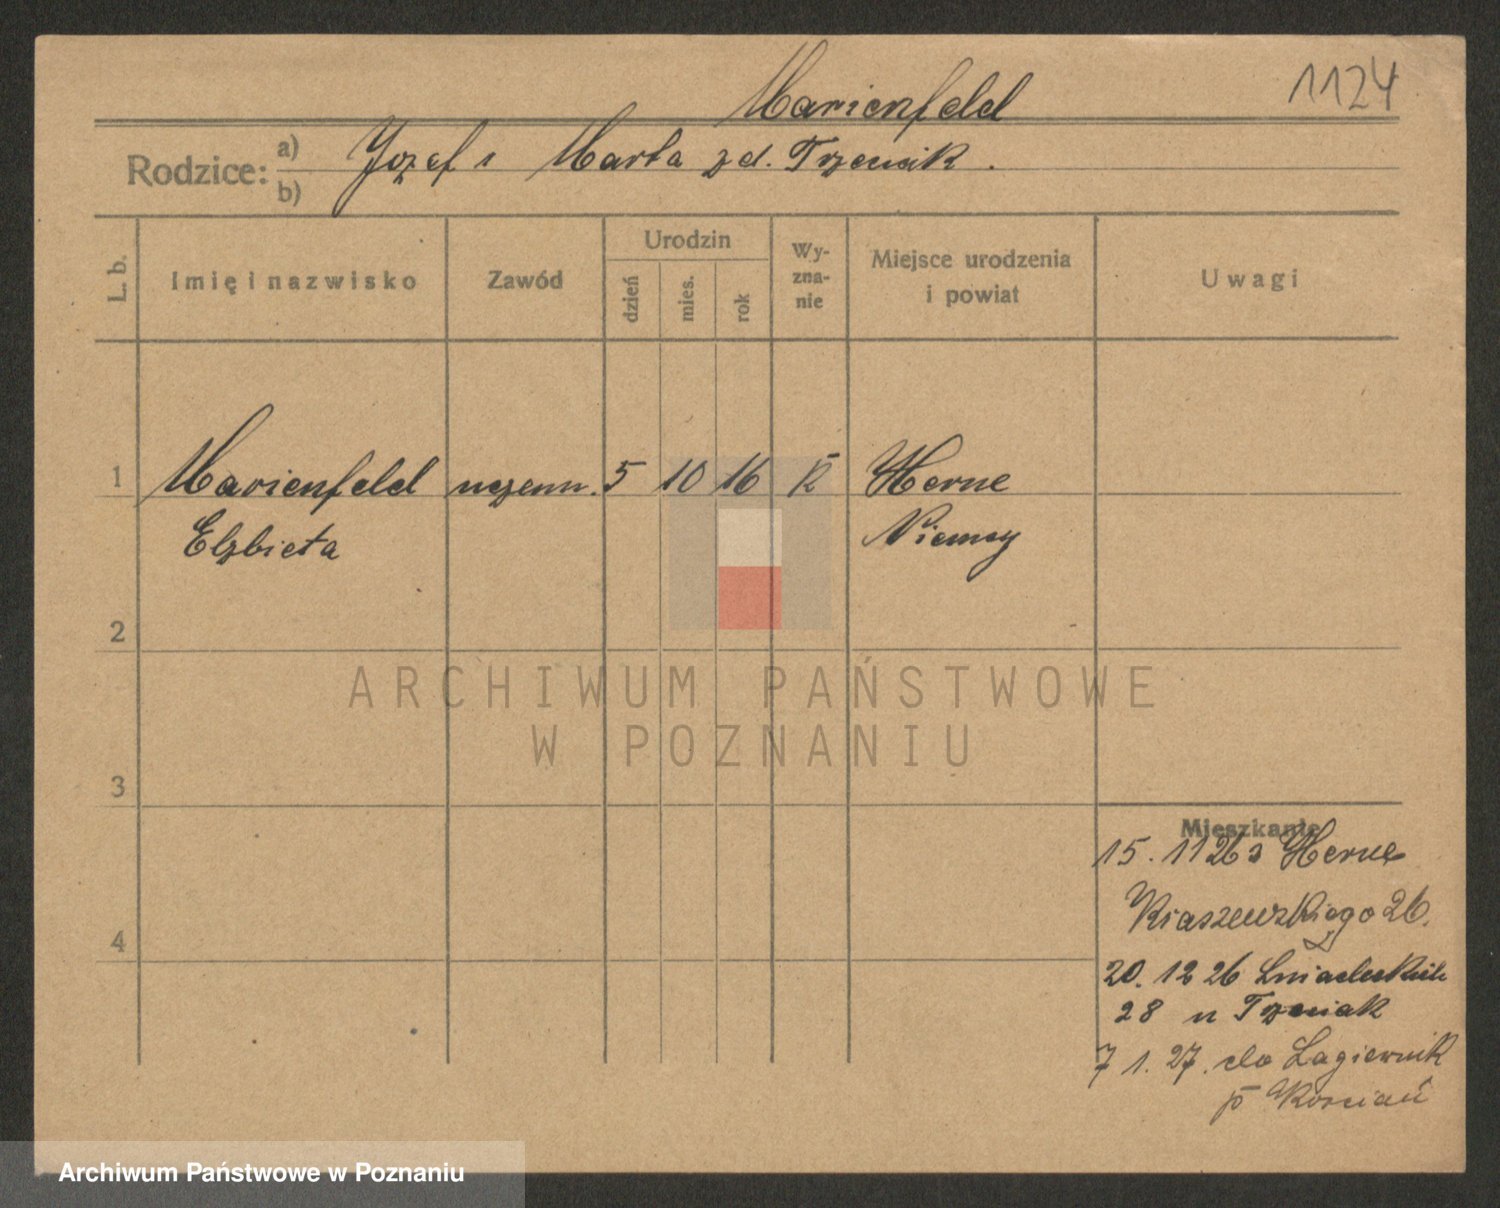 Marienfeld
1124
Rodzice:
a)
b)
Jozef i Marta z d. Trzeciak.
L. b.
Imię i nazwisko
Zawód
Urodzin
dzień
mies.
rok
Wy-
zna-
nie
Miejsce urodzenia
i powiat
Uwagi
1
Marienfeld
uczenn.
5
10
16
K
Herne
Elzbieta
Niemcy
2
3
4
ARCHIWUM PAŃSTWOWE
W POZNANIU
Mieszkanie
15. 11 26 z Herne
Kraszewskiego 26.
20. 12 26 Śniadeckich
28 u Trzeciak
7 1. 27. do Lagiewnik
p Kościań
Archiwum Państwowe w Poznaniu